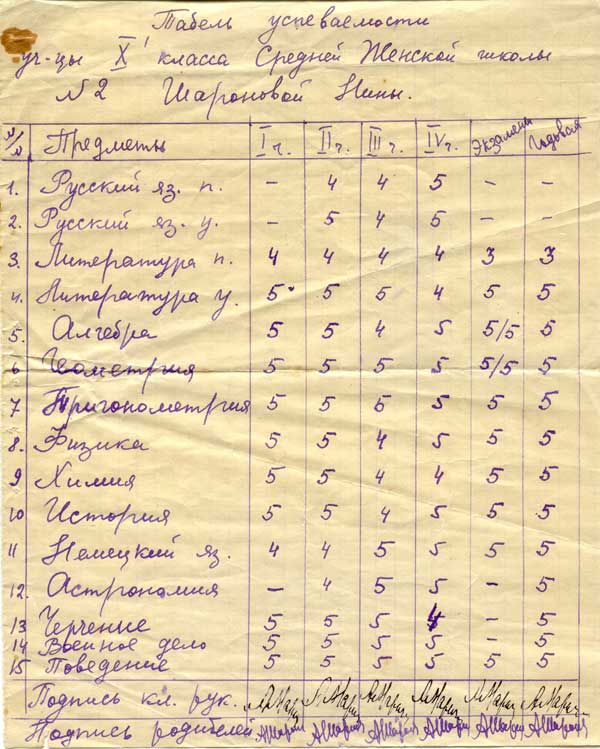 Табель успеваемости
уч-цы X¹ класса Средней Женской школы
N 2 Шароновой Нины.
N/N Предметы I ч. II ч. III ч. IV ч. Экзамены Годовая
1. Русский яз. п. – 4 4 5 – –
2. Русский яз. у. – 5 4 5 – –
3. Литература п. 4 4 4 4 3 3
4. Литература у. 5 5 5 4 5 5
5. Алгебра 5 5 4 5 5/5 5
6 Геометрия 5 5 5 5 5/5 5
7 Тригонометрия 5 5 5 5 5 5
8. Физика 5 5 4 5 5 5
9 Химия 5 5 4 4 5 5
10 История 5 5 4 5 5 5
11 Немецкий яз. 4 4 5 5 5 5
12. Астрономия – 4 5 5 – 5
13 Черчение 5 5 5 – 5
14 Военное дело 5 5 5 5 – 5
15 Поведение 5 5 5 5 5 5
Подпись кл. рук.
Подпись родителей